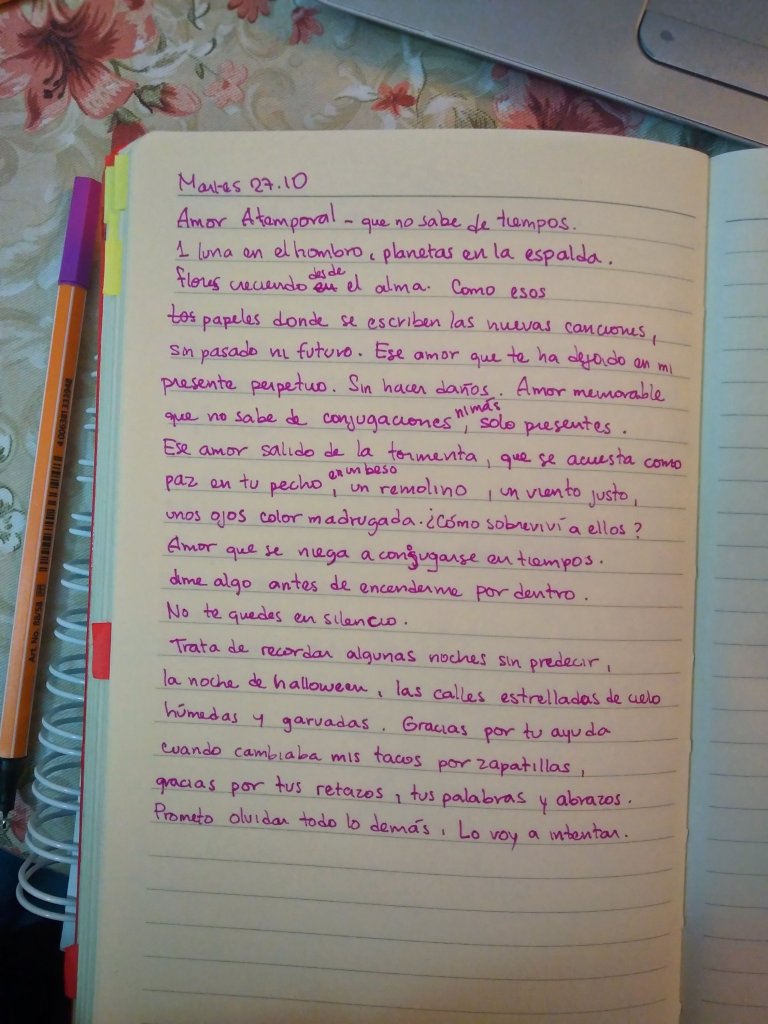 Martes 27.10
Amor Atemporal - que no sabe de tiempos.
1 luna en el hombro, planetas en la espalda.
flores creciendo en desde el alma. Como esos
los papeles donde se escriben las nuevas canciones,
sin pasado ni futuro. Ese amor que te ha dejado en mi
presente perpetuo. Sin hacer daños. Amor memorable
que no sabe de conjugaciones ni más, solo presentes.
Ese amor salido de la tormenta, que se acuesta como
paz en tu pecho, en un beso, un remolino, un viento justo,
unos ojos color madrugada. ¿Cómo sobreviví a ellos?
Amor que se niega a conjugarse en tiempos.
dime algo antes de encenderme por dentro.
No te quedes en silencio.
Trata de recordar algunas noches sin predecir,
la noche de halloween, las calles estrelladas de cielo
húmedas y garuadas. Gracias por tu ayuda
cuando cambiaba mis tacos por zapatillas,
gracias por tus retazos, tus palabras y abrazos.
Prometo olvidar todo lo demás, Lo voy a intentar.
Art. No. 88/58
4 006381 333948